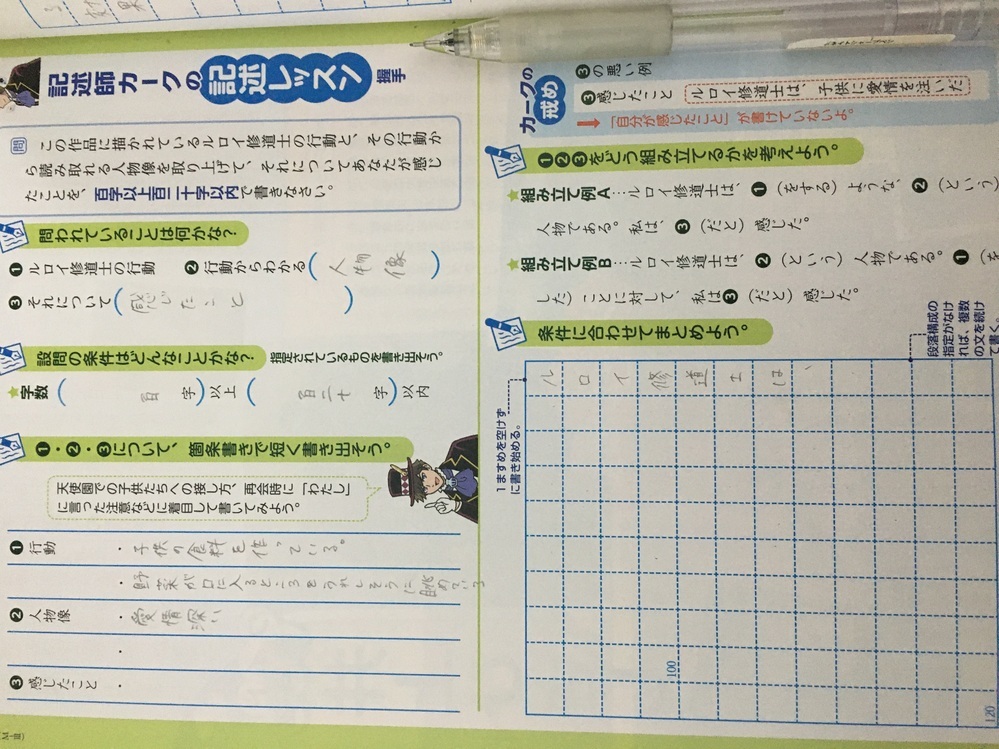 記述師カークの記述レッスン 握手
問 この作品に描かれているルロイ修道士の行動と、その行動か
ら読み取れる人物像を取り上げて、それについてあなたが感じ
たことを、百字以上百二十字以内で書きなさい。
問われていることは何かな?
❶ ルロイ修道士の行動 ❷ 行動からわかる(人物像)
❸ それについて(感じたこと)
設問の条件はどんなことかな? 指定されているものを書き出そう。
★字数(百字)以上(百二十字)以内
❶・❷・❸について、箇条書きで短く書き出そう。
天使園での子供たちへの接し方、再会時に「わたし」
に言った注意などに着目して書いてみよう。
❶ 行動 ・子供の食料を作っている。
・野菜が口に入るところをうれしそうに眺めている
❷ 人物像 ・愛情深い
・
❸ 感じたこと ・
カークの戒め
❸の悪い例
❸ 感じたこと ルロイ修道士は、子供に愛情を注いだ
➡「自分が感じたこと」が書けていないよ。
❶❷❸をどう組み立てるかを考えよう。
★組み立て例A…ルロイ修道士は、❶(をする)ような、❷(という)
人物である。私は、❸(だと)感じた。
★組み立て例B…ルロイ修道士は、❷(という)人物である。❶(を
した)ことに対して、私は❸(だと)感じた。
条件に合わせてまとめよう。
段落構成の
指定がなけ
れば、複数
の文を続け
て書く。
1ますめを空けず
に書き始める。
ルロイ修道士は、
100
120